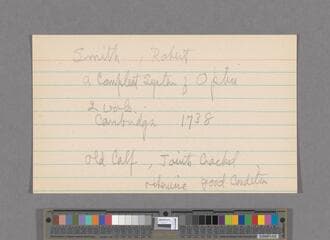 Smith, Robert
a Compleat System of Optics
2 vols.
Cambridge 1738
Old Calf, Joints Cracked,
otherwise good Condition